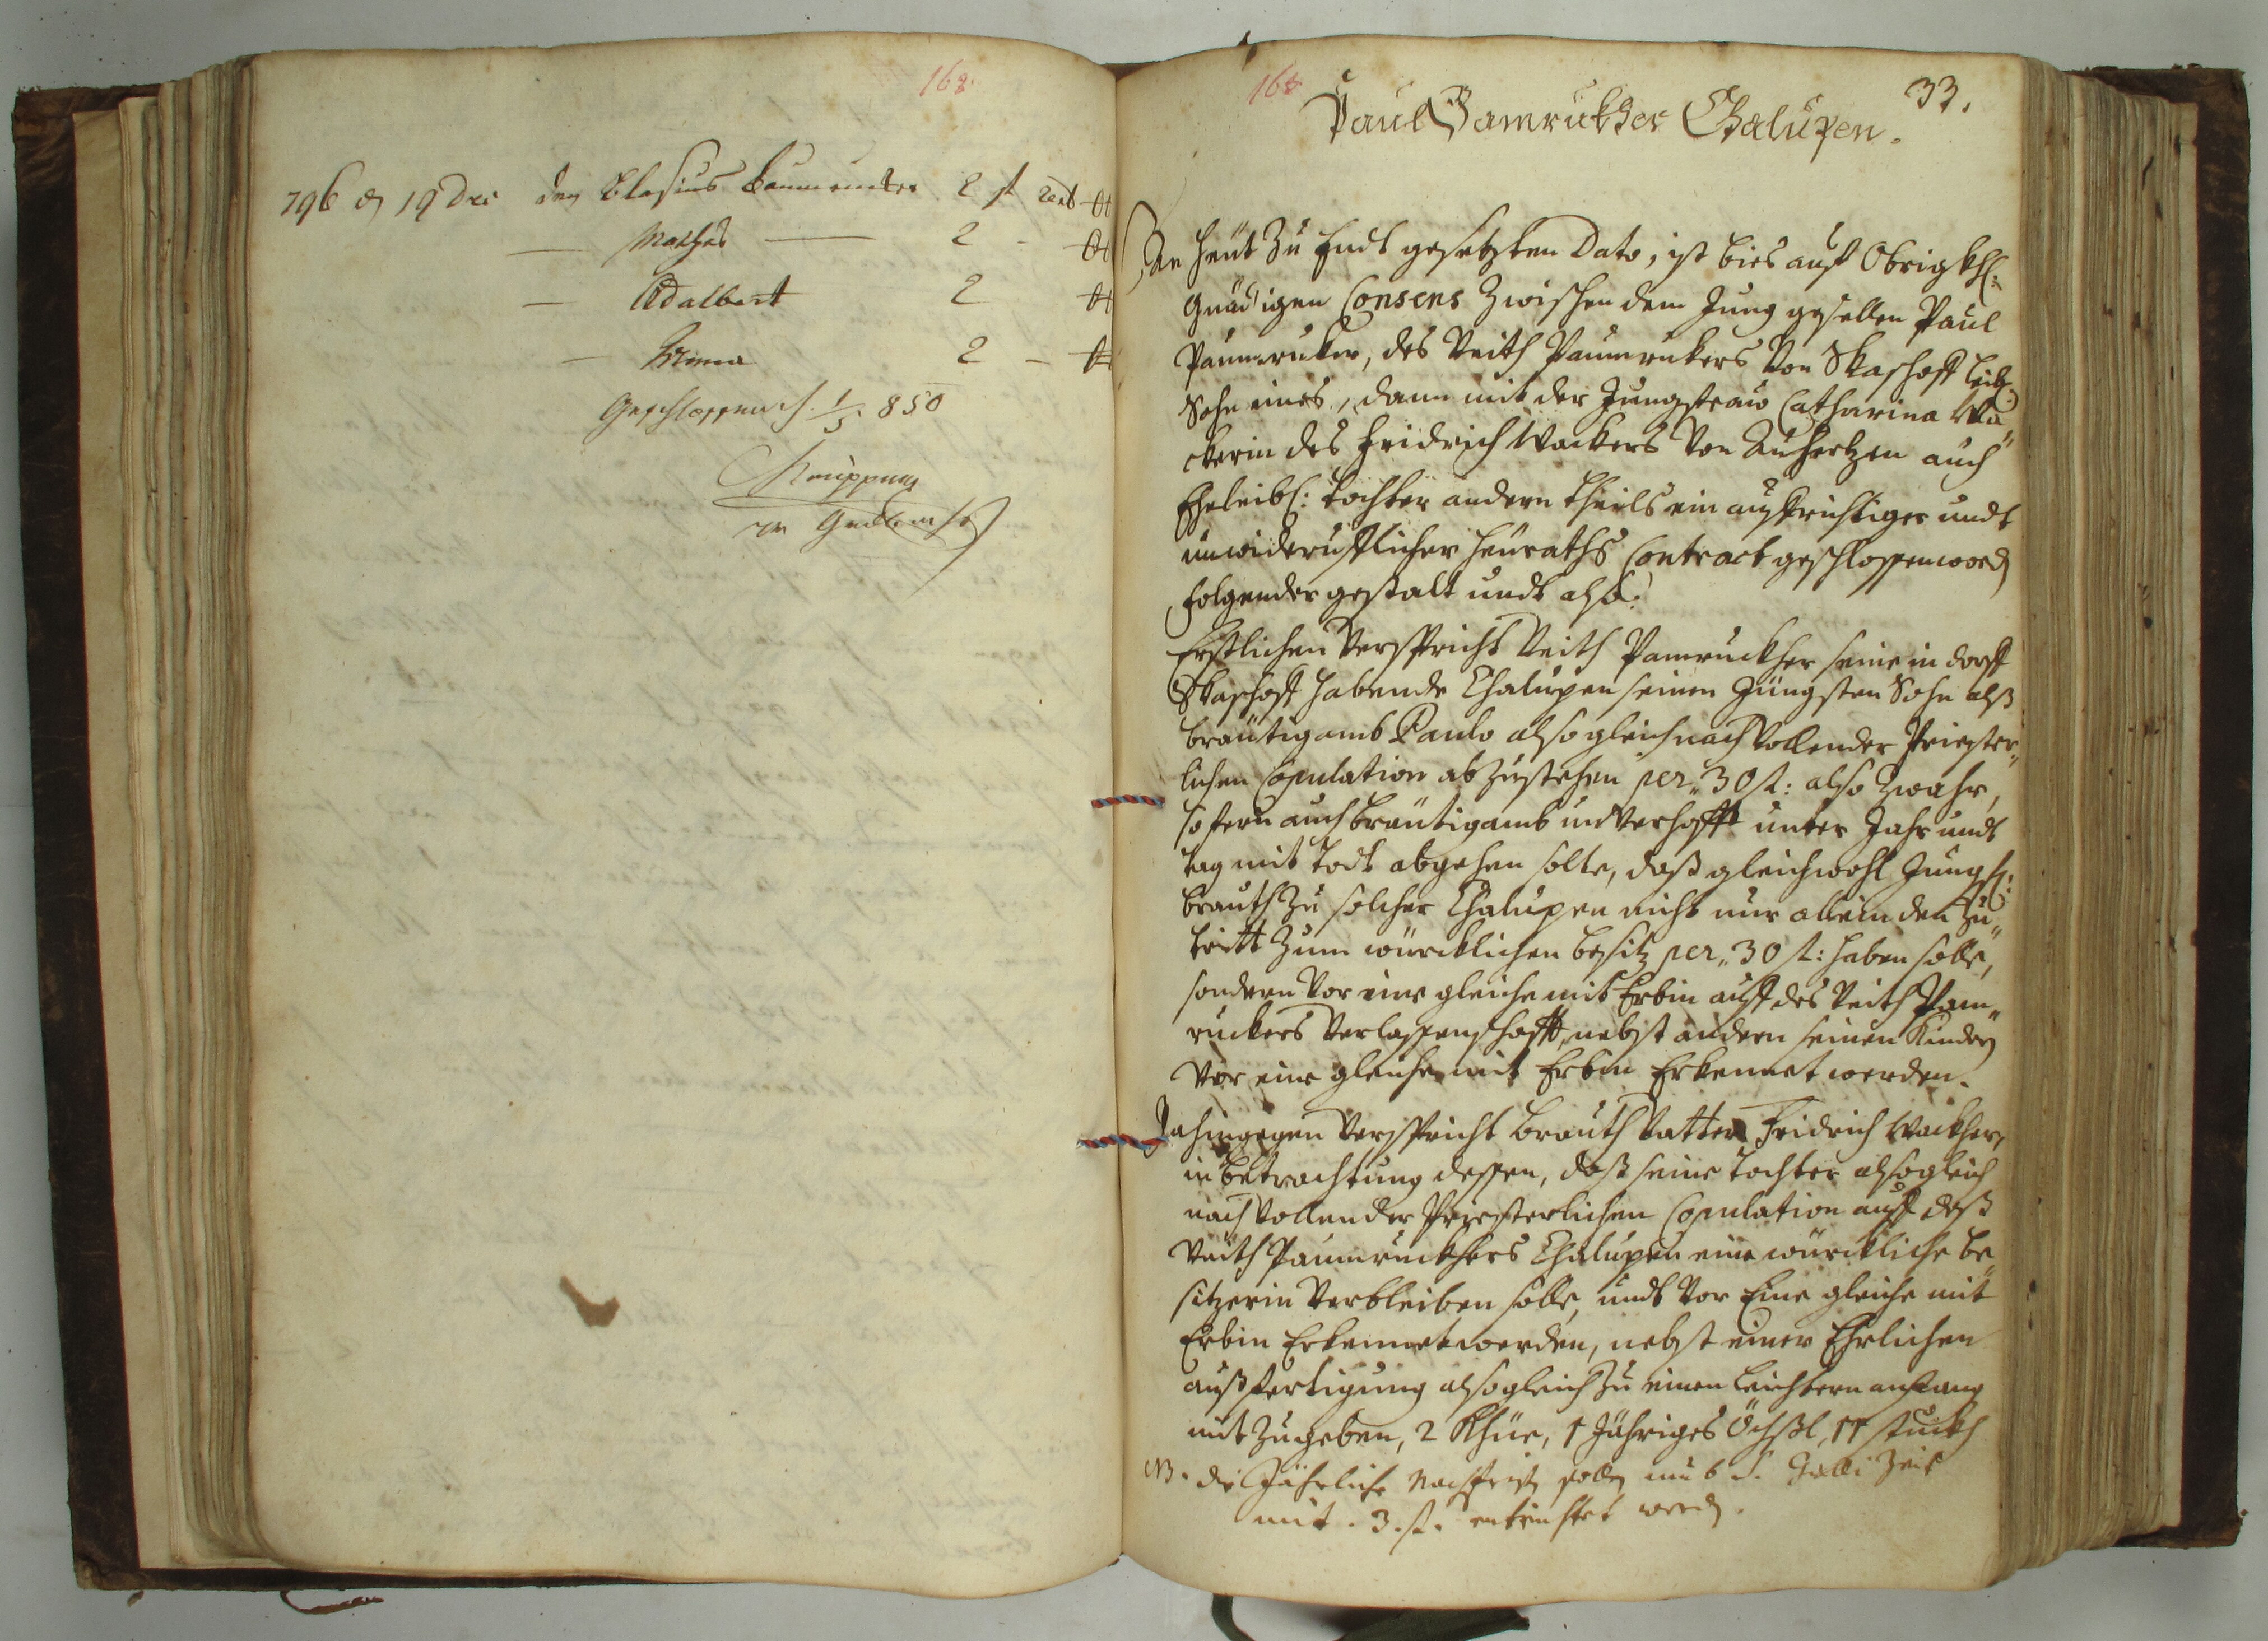 168.
796 den 19 Dec den Blasius Baumrucker 2 f
— Mathes — 2 -
— Adalbert 2
— Anna 2 -
Geschlossen d. 1/5 850
168
33.
Paul Bamrukher Chalupen.
An heüt zu Endt gesetzten Dato, ist bies auf Obrigkhl:
Gnädigen Consens zwischen dem Jung gesellen Paul
Paumruker, des Veith Paumrukers von Skaschoff leibl:
Sohn eines, dann mit der Jungfraw Catharina Wa„
ckerin des Fridrich Wackers von Auherzen auch
Eheleibl: Tochter andern theils ein auffrichtiger undt
unwiderufflicher Heüraths Contract geschlossen word
folgender gestalt undt also:
Erstlichen Verspricht Veith Pamruckher seine in dorff
Skaschoff habende Chalupen seinen Jüngsten Sohn alß
bräutigamb Paulo alsogleich nach Vollender Priester„
lichen Copulation abzustehen per„ 30 f: also zwahr,
so fern auch bräutigamb unverhofft unter Jahr undt
tag mit Todt abgehen solte, daß gleichwohl Jungf:
brauth zu solcher Chalupen nicht nur allein den Zu„
tritt zum würcklichen besitz per„ 30 f: haben solle,
sondern Vor eine gleiche mit Erbin auff des Veith Pam„
ruckers Verlassenschafft, nebst andern seinen Kindern
Vor eine gleiche mit Erbin Erkennet werden.
Dahingegen Verspricht brauth Vatter Fridrich Wackher,
in betrachtung dessen, daß seine Tochter alsogleich
nach Vollender Priesterlichen Copulation auff deß
Veith Paumruckhers Chalupen eine würckliche be„
sitzerin Verbleiben solle, undt Vor Eine gleiche mit
Erbin Erkennet werden, nebst einer Ehrlichen
außfertigung alsogleich zu einen leichtern anfang
mit zugeben, 2 Khüe, 1 Jähriges Öchßl, 11 stuckh
NB. die Jährliche Nachfrist sollen umb S. Galli Zeit
mit . 3. f. entrichtet werd.